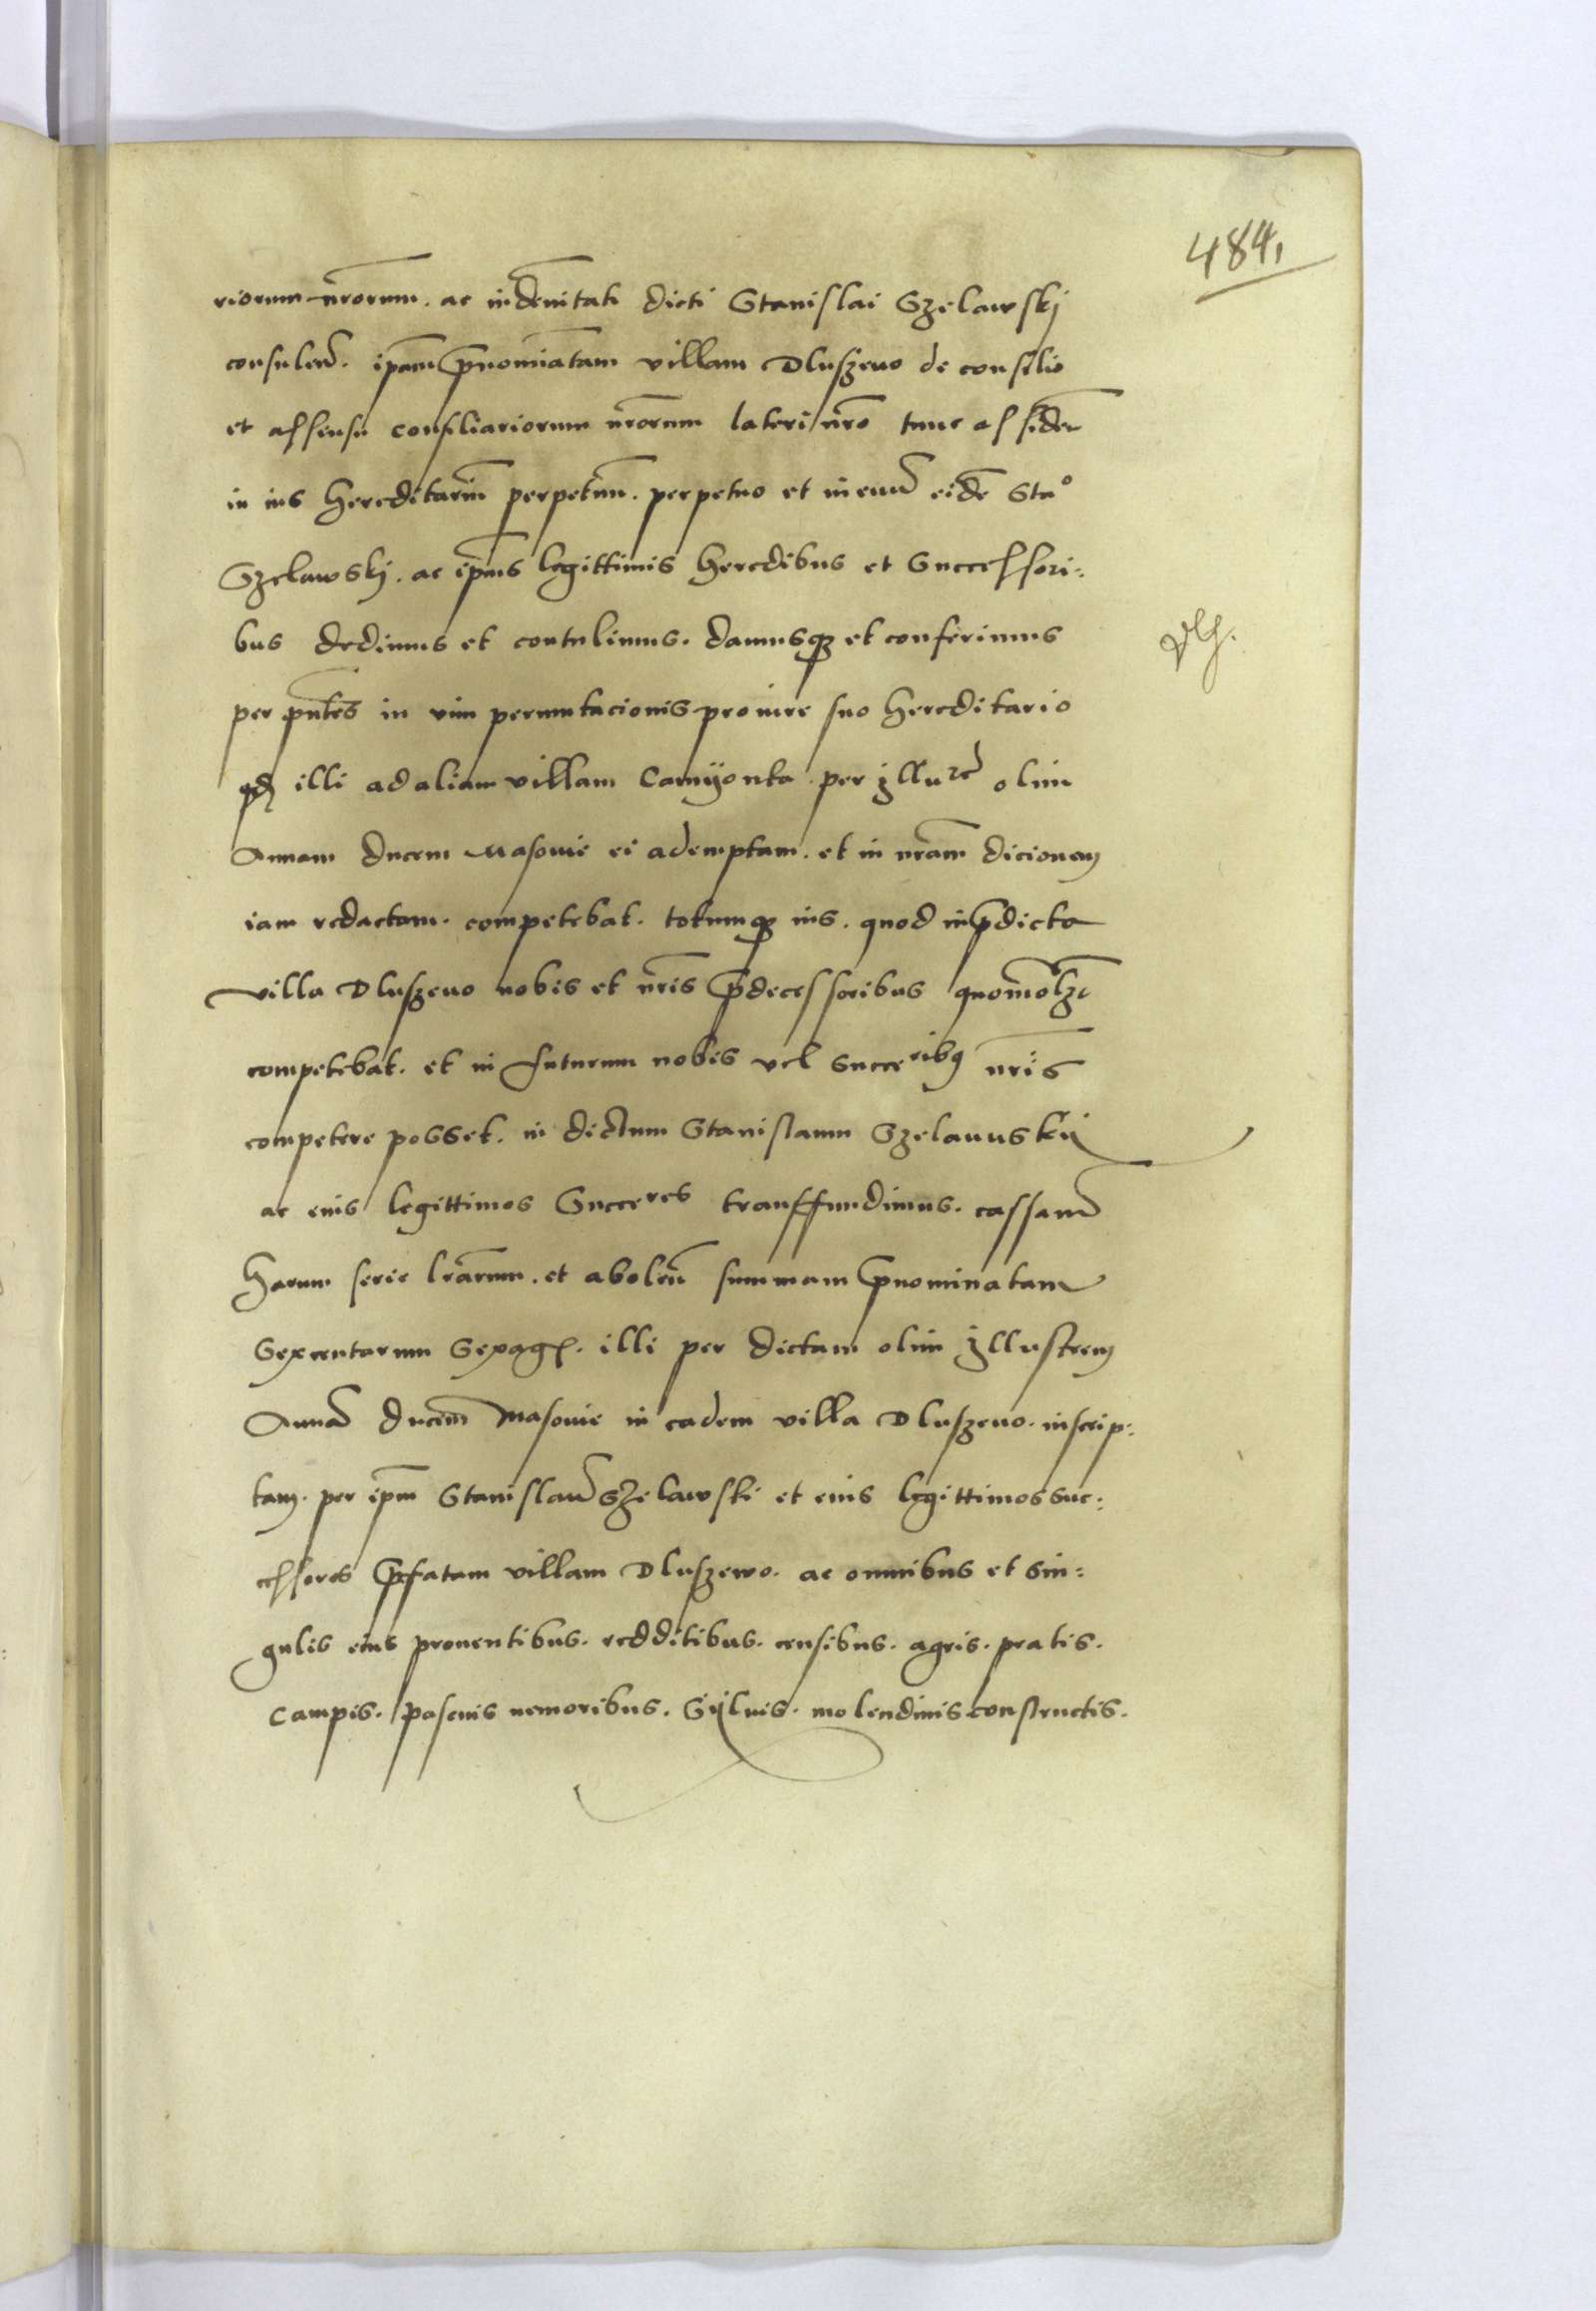 484,
riorum nr̄orum. ac indēnitati dicti Stanislai Szelawskj
consulen̄. ip̄am p̄nomīatam villam Dluszeuo de consilio
et assensu consiliariorum nr̄orum lateri nr̄o tunc assiden̄
in ius hereditariū perpetuū. perpetuo et in euū eidē Stao
Szelawskj. ac ip̄ius legittimis heredibus et Successori-
bus dedimus et contulimus. damusqꝫ et conferimus
per pn̄tes in vim permutacionis pro iure suo hereditario
qd illi ad aliam villam Camÿonka per Jllurē olim
Annam ducem Masouie ei ademptam. et in nr̄am dicionem
iam redactam. competebat. totumqꝫ ius. quod in p̄dicta
villa Dluszeuo nobis et nr̄is p̄decessoribus quomōlꝫt
competebat. et in futurum nobis vel Succeribꝰ nr̄is
competere posset. in dictum Stanislaum Szelauuskij
ac eius legittimos Succeres transffundimus. cassan̄
harum serie lr̄arum. et abolen̄ summam p̄nominatam
Sexcentarum Sexag. illi per dictam olim Jllustrem
Annā ducem̄ Masouie in eadem villa Dluszeuo. inscrip-
tam. per ip̄m Stanislaū Szelawski et eius legittimos suc-
cessores p̄fatam villam Dluszewo. ac omnibus et sin-
gulis eius prouentibus. redditibus. censibus. agris. pratis.
Campis. pascuis nemoribus. Sijluis. molendinis constructis.